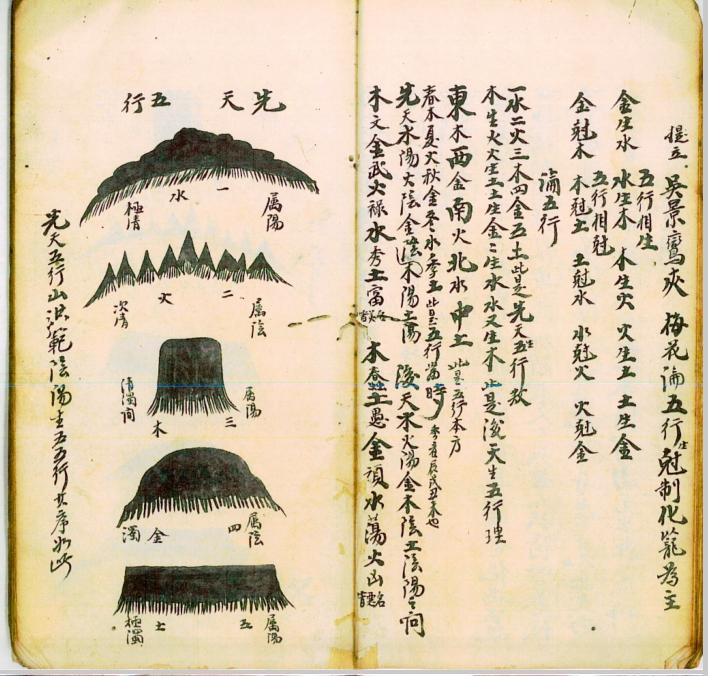 提五 吳景鸞夾 梅花論五行生尅制化籠為主
五行相生
金生水 水生木 木生火 火生土 土生金
五行相尅
金尅木 木尅土 土尅水 水尅火 火尅金
論五行
一水二火三木四金五土此是先天五行数
木生火火生土土生金金生水水又生木此是後天生五行理
東木西金南火北水中土 此是五行本方
春木夏火秋金冬水季土此是五行當時
先天水陽火陰金陰木陽土陽 後天木火陽金水陰土陰陽之間
木文金武火祿水秀土富 木蠢土愚金頑水蕩火凶
先天五行
一 水 属陽 極清
二 火 属陰 次清
三 木 属陽 清濁間
四 金 属陰 濁
五 土 属陽 極濁
先天五行山洪範陰陽生五五行其序如此